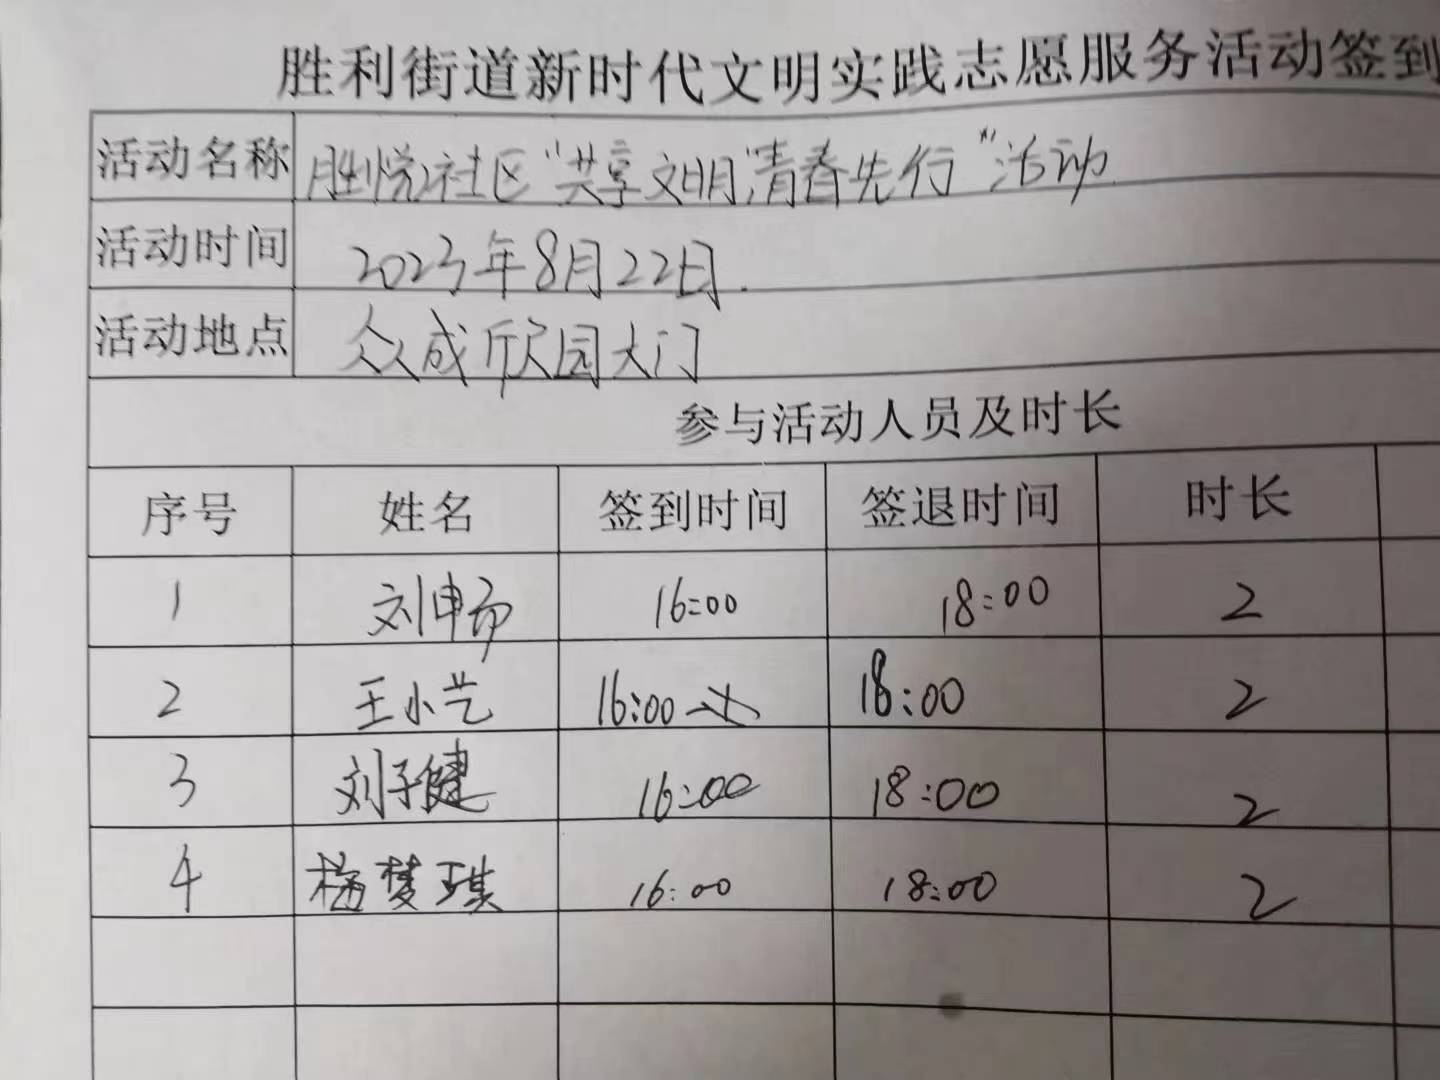 胜利街道新时代文明实践志愿服务活动签到
活动名称 胜悦社区“共享文明,青春先行”活动
活动时间 2023年8月22日.
活动地点 众成欣园大门
参与活动人员及时长
序号 姓名 签到时间 签退时间 时长
1 刘申易 16:00 18:00 2
2 王小艺 16:00 18:00 2
3 刘子健 16:00 18:00 2
4 梅梦琪 16:00 18:00 2